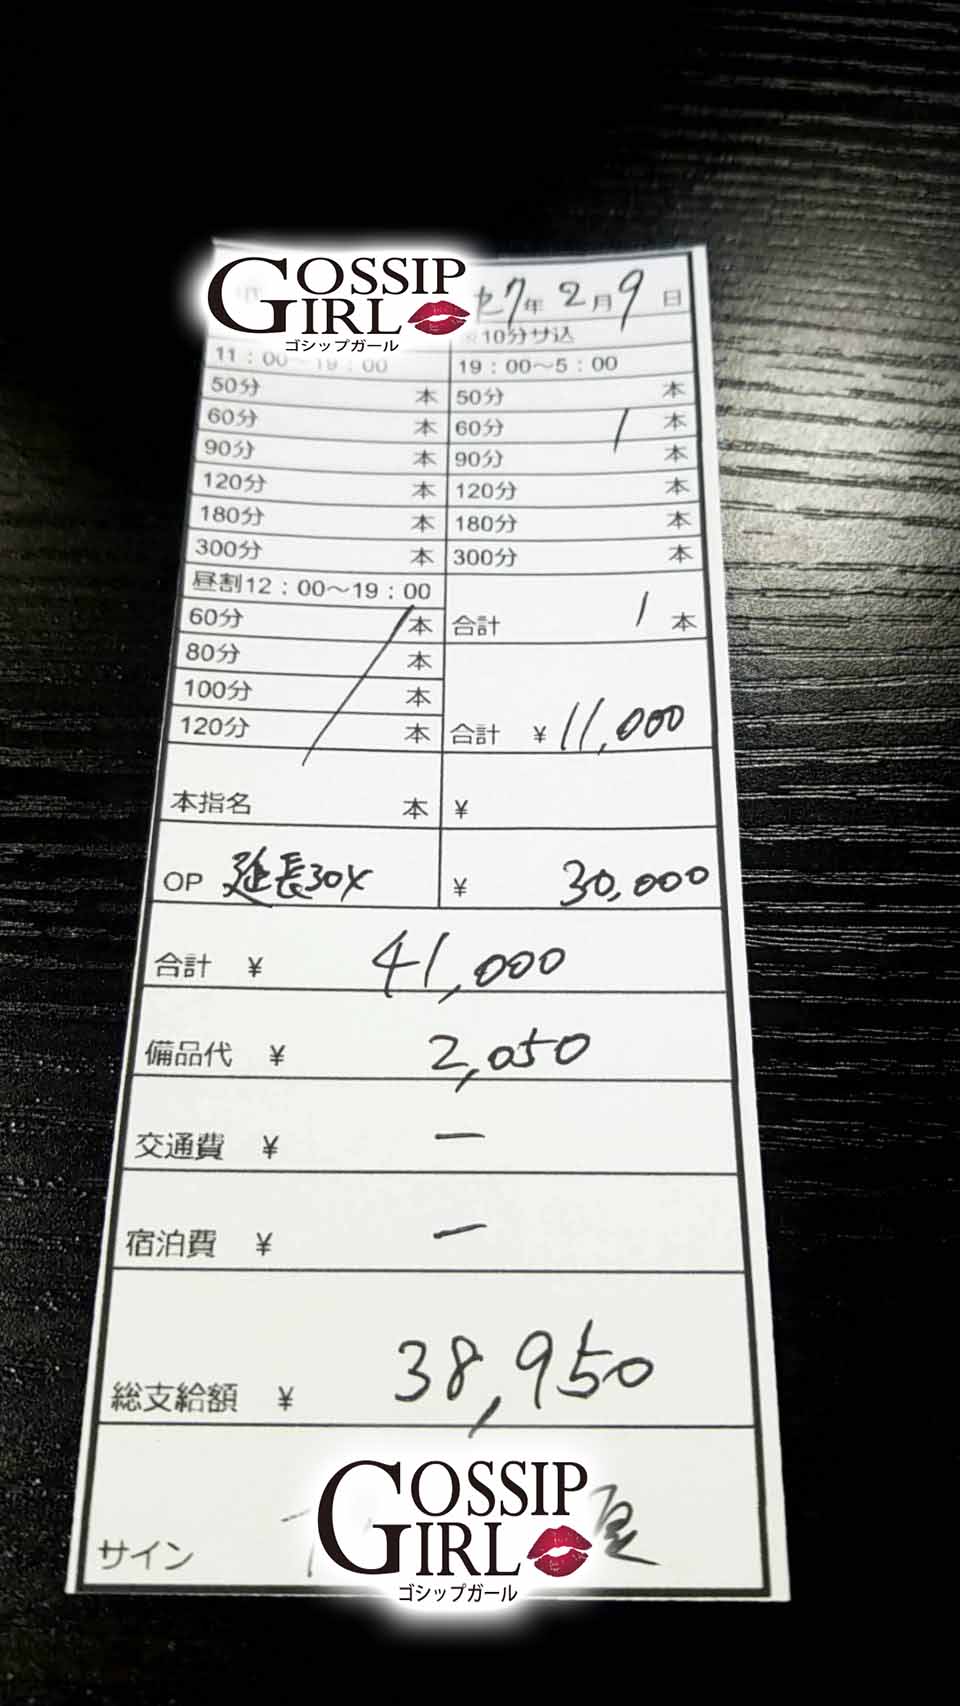 GOSSIP
GIRL
ゴシップガール
7年 2月 9日
10分サ込
11：00～19：00
19：00～5：00
50分 本 50分 本
60分 本 60分 1 本
90分 本 90分 本
120分 本 120分 本
180分 本 180分 本
300分 本 300分 本
昼割12：00～19：00
60分 本
合計 1 本
80分 本
100分 本
120分 本
合計 ¥ 11,000
本指名 本 ¥
OP 延長30× ¥ 30,000
合計 ¥ 41,000
備品代 ¥ 2,050
交通費 ¥ ー
宿泊費 ¥ ー
総支給額 ¥ 38,950
サイン
GOSSIP
GIRL
ゴシップガール